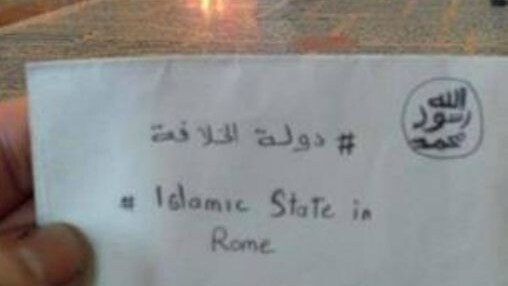 الله
رسول
محمد
# دولة الخلافة
# Islamic State in
Rome